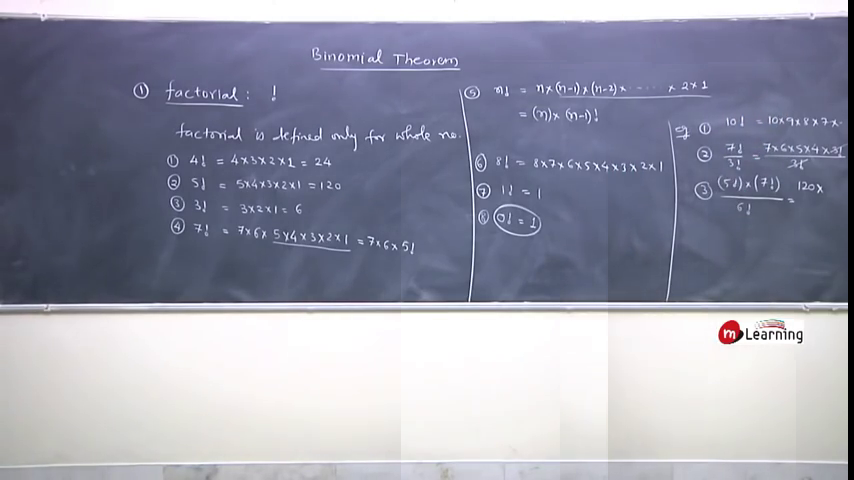 Binomial Theorem
① factorial: !
factorial is defined only for whole no.
① 4! = 4×3×2×1 = 24
② 5! = 5×4×3×2×1 = 120
③ 3! = 3×2×1 = 6
④ 7! = 7×6×5×4×3×2×1 = 7×6×5!
⑤ n! = n×(n-1)×(n-2)×----- ×2×1
= (n)×(n-1)!
⑥ 8! = 8×7×6×5×4×3×2×1
⑦ 1! = 1
⑧ 0! = 1
eg ① 10! = 10×9×8×7×-
② 7!/3! = 7×6×5×4×3!/3!
③ (5!)×(7!)/6! = 120×
m Learning